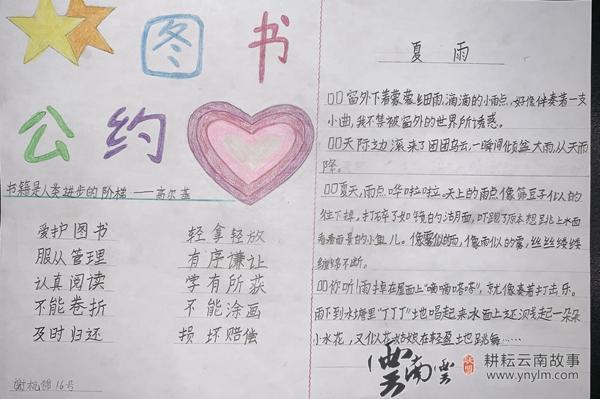 图书
公约
书籍是人类进步的阶梯——高尔基
爱护图书 轻拿轻放
服从管理 有序谦让
认真阅读 学有所获
不能卷折 不能涂画
及时归还 损坏赔偿
16号
夏雨
窗外下着蒙蒙细雨,滴滴的小雨点,好像伴奏着一支
小曲,我不禁被窗外的世界所诱惑。
天际边滚来了团团乌云,一瞬间倾盆大雨,从天而
降。
夏天,雨点哗啦啦。天上的雨点像筛豆子似的
往下掉,打碎了如镜的湖面,吓跑了原本想跳上水面
看看雨景的小鱼儿。像雾似的雨,像雨似的雾,丝丝缕缕
缠绵不断。
你听!雨掉在屋面上"嘀嘀嗒嗒",就像奏着打击乐。
雨下到水塘里"丁丁丁"地唱起来水面上还泛起一朵朵
小水花,又似花姑娘在轻盈地跳舞……
云南云
耕耘云南故事
www.ynylm.com